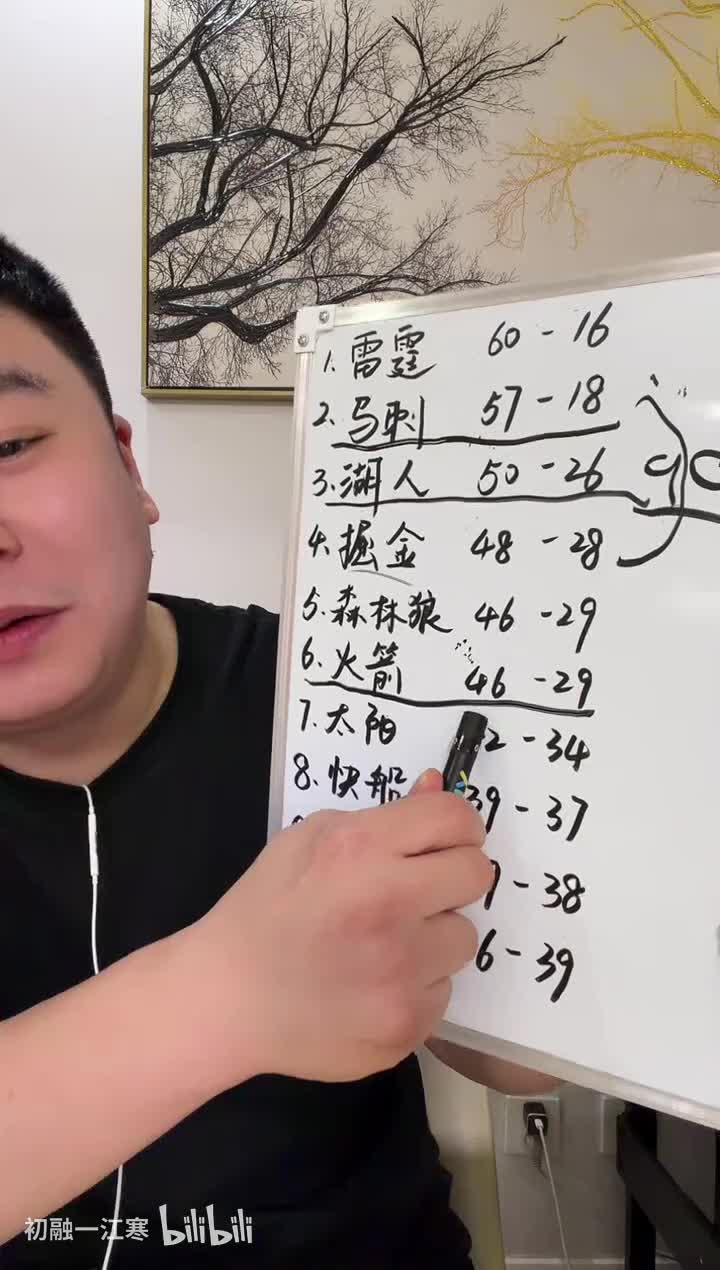 1. 雷霆 60-16
2. 马刺 57-18
3. 湖人 50-26
4. 掘金 48-28
5. 森林狼 46-29
6. 火箭 46-29
7. 太阳 2-34
8. 快船 39-37
-38
6-39
初融一江寒 bilibili